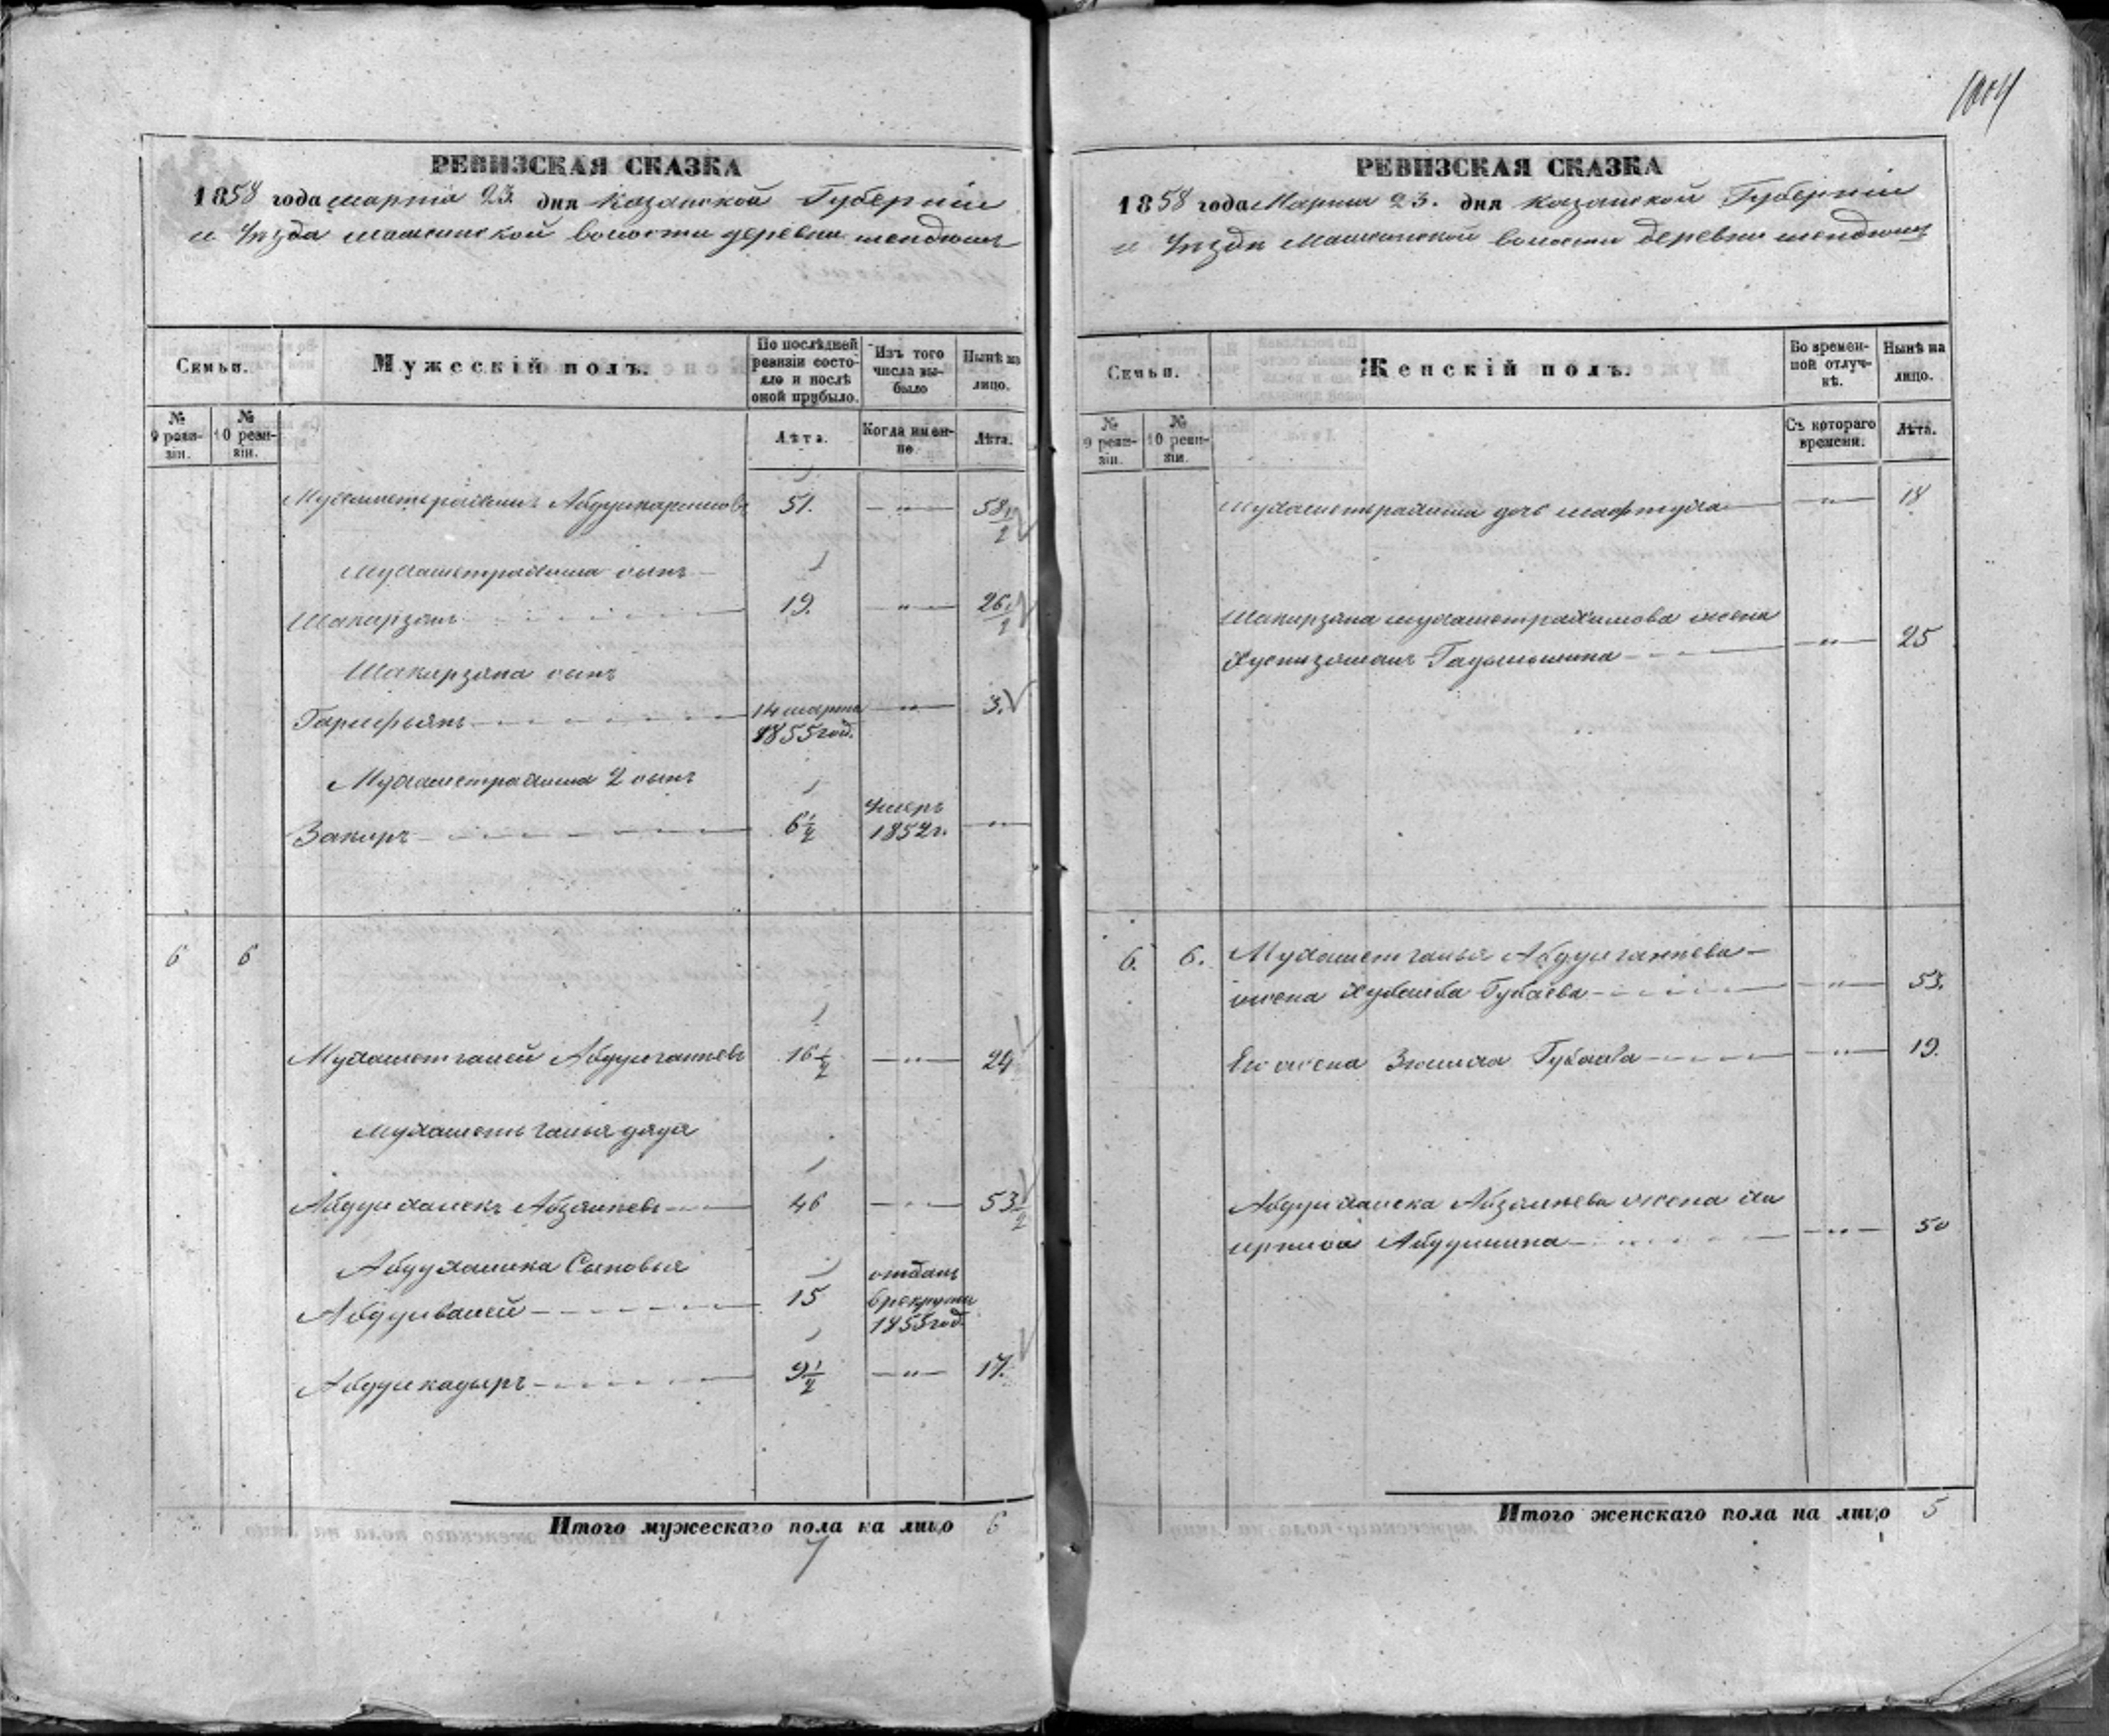 1004
РЕВИЗСКАЯ СКАЗКА
1858 года марта 23. дня Казанской Губернии
и Уѣзда Машкинской волости деревни
Семьи.
Мужескій полъ.
По послѣдней ревизіи состояло и послѣ оной прубыло.
Изъ того числа выбыло
Нынѣ на лицо.
№ 9 ревизіи.
№ 10 ревизіи.
Лѣта.
Когда именно
Лѣта.
Мухаметьрахимъ Абдулкаримовъ 51. — " — 58 1/2
Мухаметрахима сынъ
Шакирзянъ 19. — " — 26 1/2
Шакирзяна сынъ
Гарифьянъ 14 марта 1855 год. — " — 3.
Мухаметрахима 2 сынъ
Закиръ 6 1/2 Умеръ 1852 г. — " —
6 6
Мухаметгалей Абдулганиевъ 16 1/2 — " — 24
Мухаметь галья дядя
Абдулхаликъ Абзялиевъ 46 — " — 53 1/2
Абдулхалика Сыновья
Абдулвалей 15 отданъ в рекруты 1855 год.
Абдулкадыръ 9 1/2 — " — 17.
Итого мужескаго пола на лицо 6
7
РЕВИЗСКАЯ СКАЗКА
1858 года Марта 23. дня Казанской Губерніи
и Уѣзда Машкинской волости деревни
Семьи.
Женскій полъ.
Во временной отлучкѣ.
Нынѣ на лицо.
№ 9 ревизіи.
№ 10 ревизіи.
Съ котораго времени.
Лѣта.
Мухаметьрахима дочь — " — 18
Шакирзяна мухаметрахимова жена
— " — 25
6. 6. Мухаметгалья Абдулганиева
жена Губаева — " — 53.
Его жена Губаева — " — 19.
Абдулхалика Абзялиева жена
Абдулина — " — 50
Итого женскаго пола на лицо 5